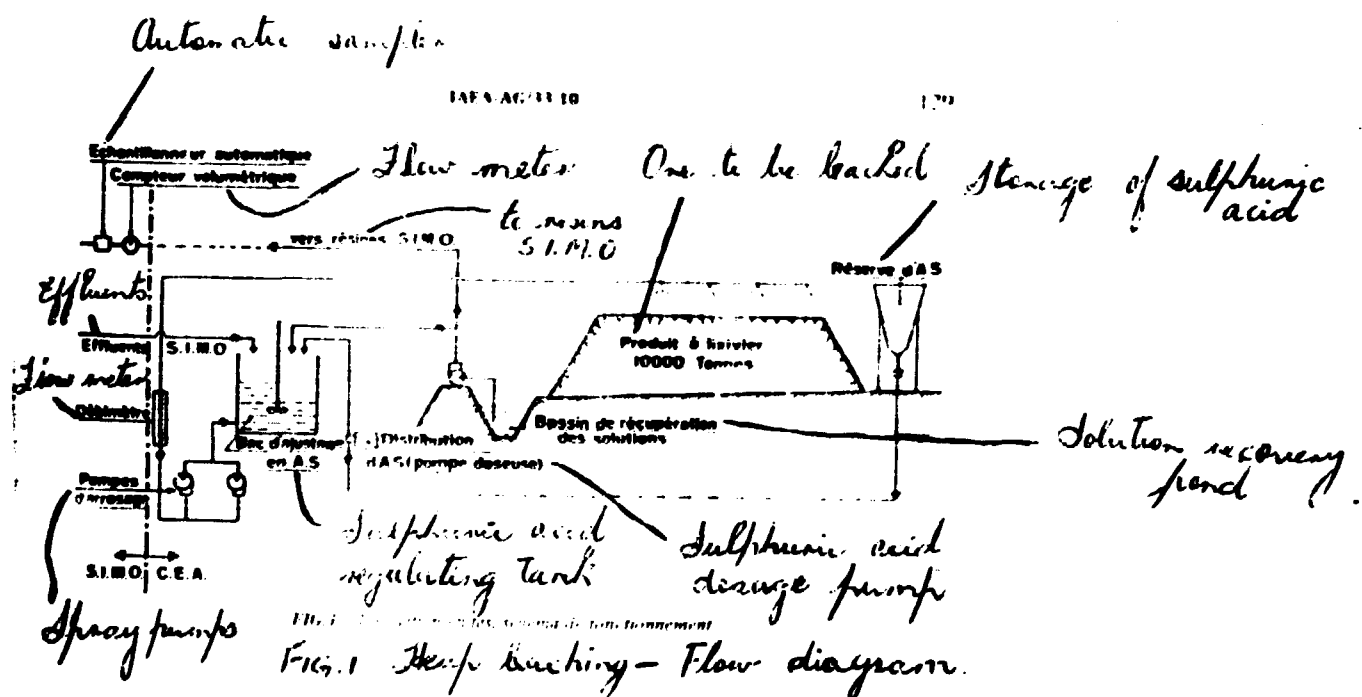 Automatic sampler
IAEA-AG/33-10
Echantillonneur automatique
Compteur volumétrique
Flow meter
Ore to be leached
Storage of sulphuric
acid
to resins
S.I.M.O
vers résines S.I.M.O
Réserve d'A.S
Effluents
Effluents S.I.M.O
Produit à lixivier
10000 Tonnes
Flow meter
Débimètre
Bac d'ajustage
en A.S
Distribution
d'AS (pompe doseuse)
Bassin de récupération
des solutions
Solution recovery
pond
Pompes
d'arrosage
Sulphuric acid
regulating tank
Sulphuric acid
dosage pump
S.I.M.O. C.E.A.
Spray pumps
schéma de fonctionnement
FIG.1 Heap leaching - Flow diagram.